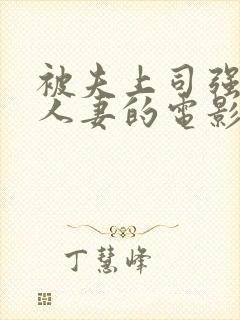 被夫上司强
人妻的电影
丁慧峰